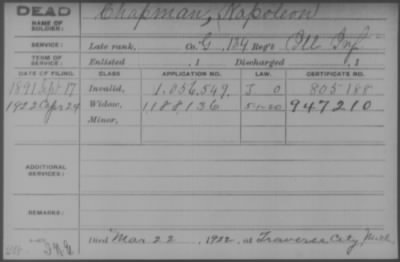 DEAD
NAME OF SOLDIER: Chapman, Napoleon
SERVICE: Late rank, Co. G, 134 Reg't Ill Inf
TERM OF SERVICE: Enlisted , 1 Discharged , 1
DATE OF FILING. CLASS APPLICATION NO. LAW. CERTIFICATE NO.
1891 Sept 17 Invalid, 1,056,549. J. O 805188
1922 Apr 24 Widow, 1188,136 5-1-20 947210
Minor,
ADDITIONAL SERVICES:
REMARKS:
Died Mar 22, 1922, at Traverse City, Mich.